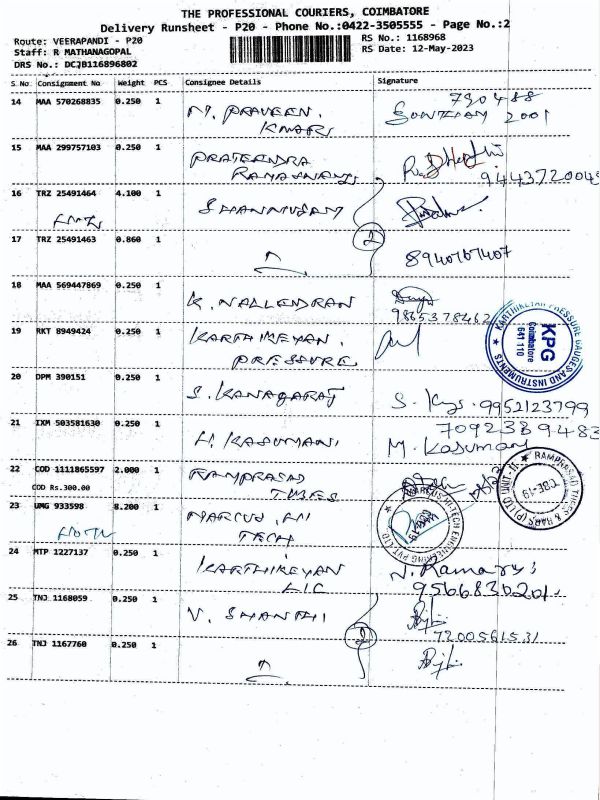 THE PROFESSIONAL COURIERS, COIMBATORE
Delivery Runsheet - P20 - Phone No.:0422-3505555 - Page No.:2
Route: VEERAPANDI - P20
RS No.: 1168968
Staff: R MATHANAGOPAL
RS Date: 12-May-2023
DRS No.: DCJB116896802
S No Consignment No Weight PCS Consignee Details Signature
14 MAA 570268835 0.250 1 M. PRAVEEN.
KMARI
790488
2001
15 MAA 299757103 0.250 1 PRATEENDRA
16 TRZ 25491464 4.100 1 SHANMUGAM
2
17 TRZ 25491463 0.860 1 8940767407
18 MAA 569447869 0.250 1 K. NALLENDRAN
9865378462
19 RKT 8949424 0.250 1 KARTHIKEYAN.
PRESSURE
KARTHIKEYAN PRESSURE GAUGES AND INSTRUMENTS
KPG
Coimbatore
641 110
20 DPM 390151 0.250 1 S. KANAGARAJ S. 9952123799
21 IXM 503581630 0.250 1 H. KASUMANI. 7092389483
M. Kasuman
22 COD 1111865597 2.000 1 RAMPRASAD
COD Rs.300.00
TUBES
RAMPRASAD TUBES & BARS (P) LTD UNIT-II
CBE-19
23 UMG 933598 8.200 1 MARCUS HI
TECH
MARCUS HI-TECH ENGINEERING PVT LTD
24 MTP 1227137 0.250 1 KARTHIKEYAN
LIC
9566830201.
25 TNJ 1168059 0.250 1 V. SHANTHI
7200561531
2
26 TNJ 1167760 0.250 1